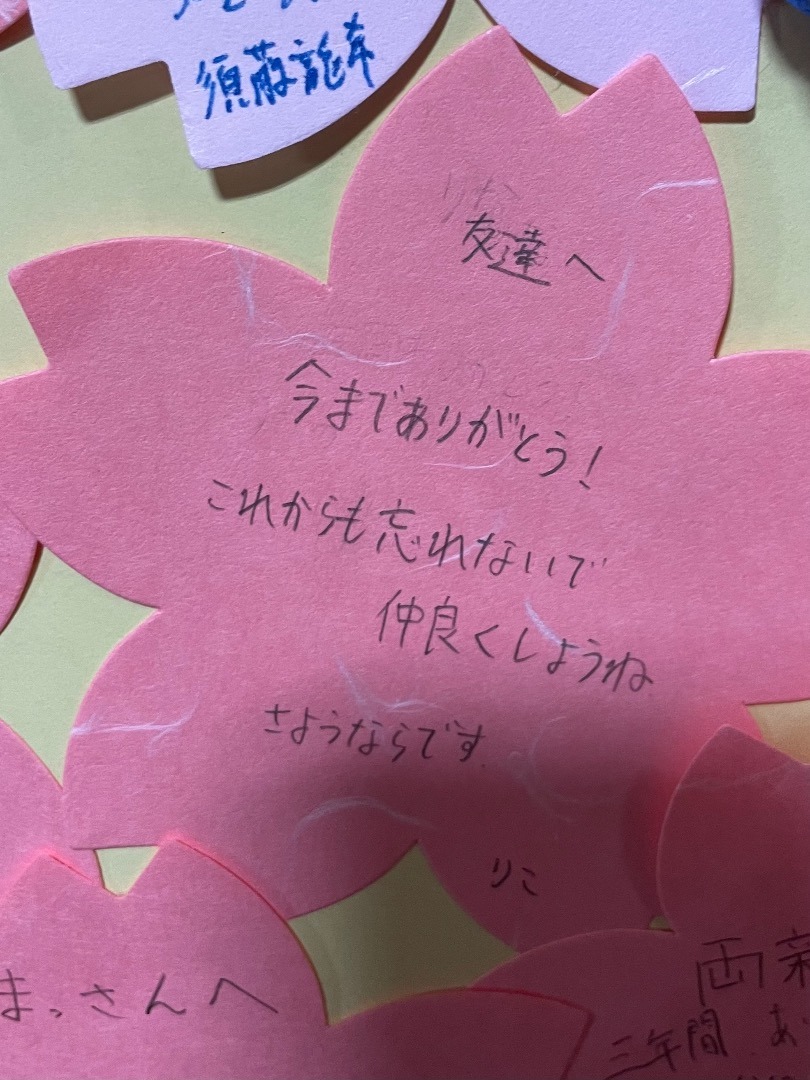 須藤龍本
友達へ
今までありがとう!
これからも忘れないで
仲良くしようね
さようならです.
りこ
まっさんへ
両新
三年間 あ